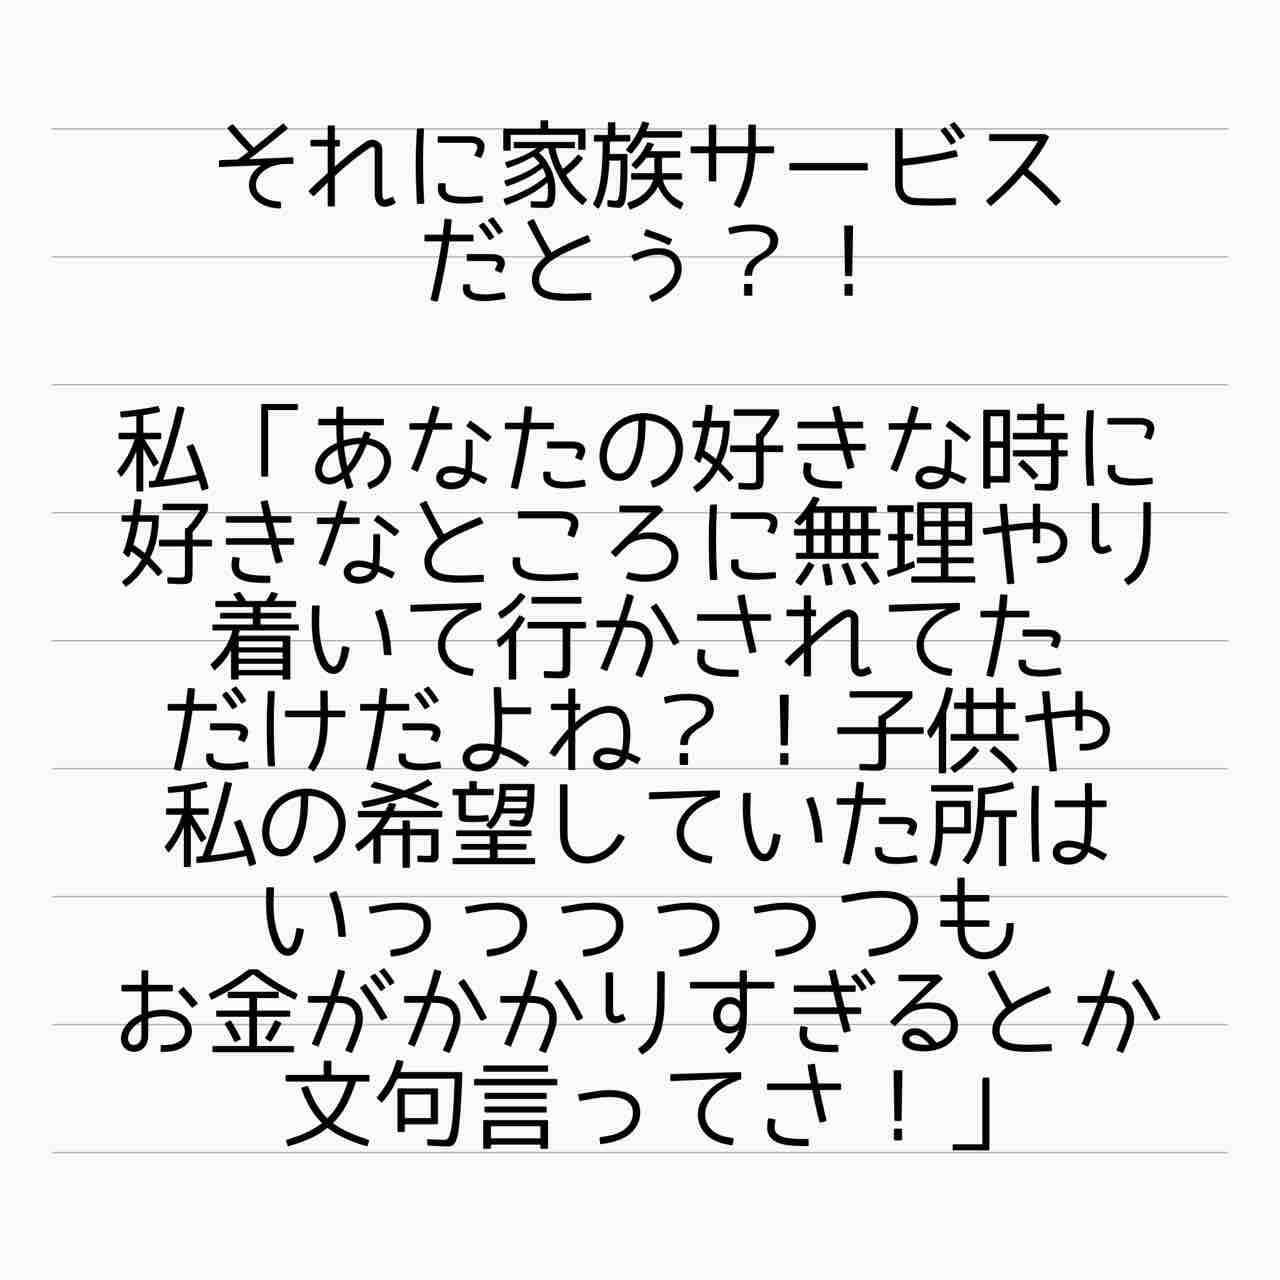 それに家族サービス
だとぅ？！
私「あなたの好きな時に
好きなところに無理やり
着いて行かされてた
だけだよね？！子供や
私の希望していた所は
いっっっっっつも
お金がかかりすぎるとか
文句言ってさ！」